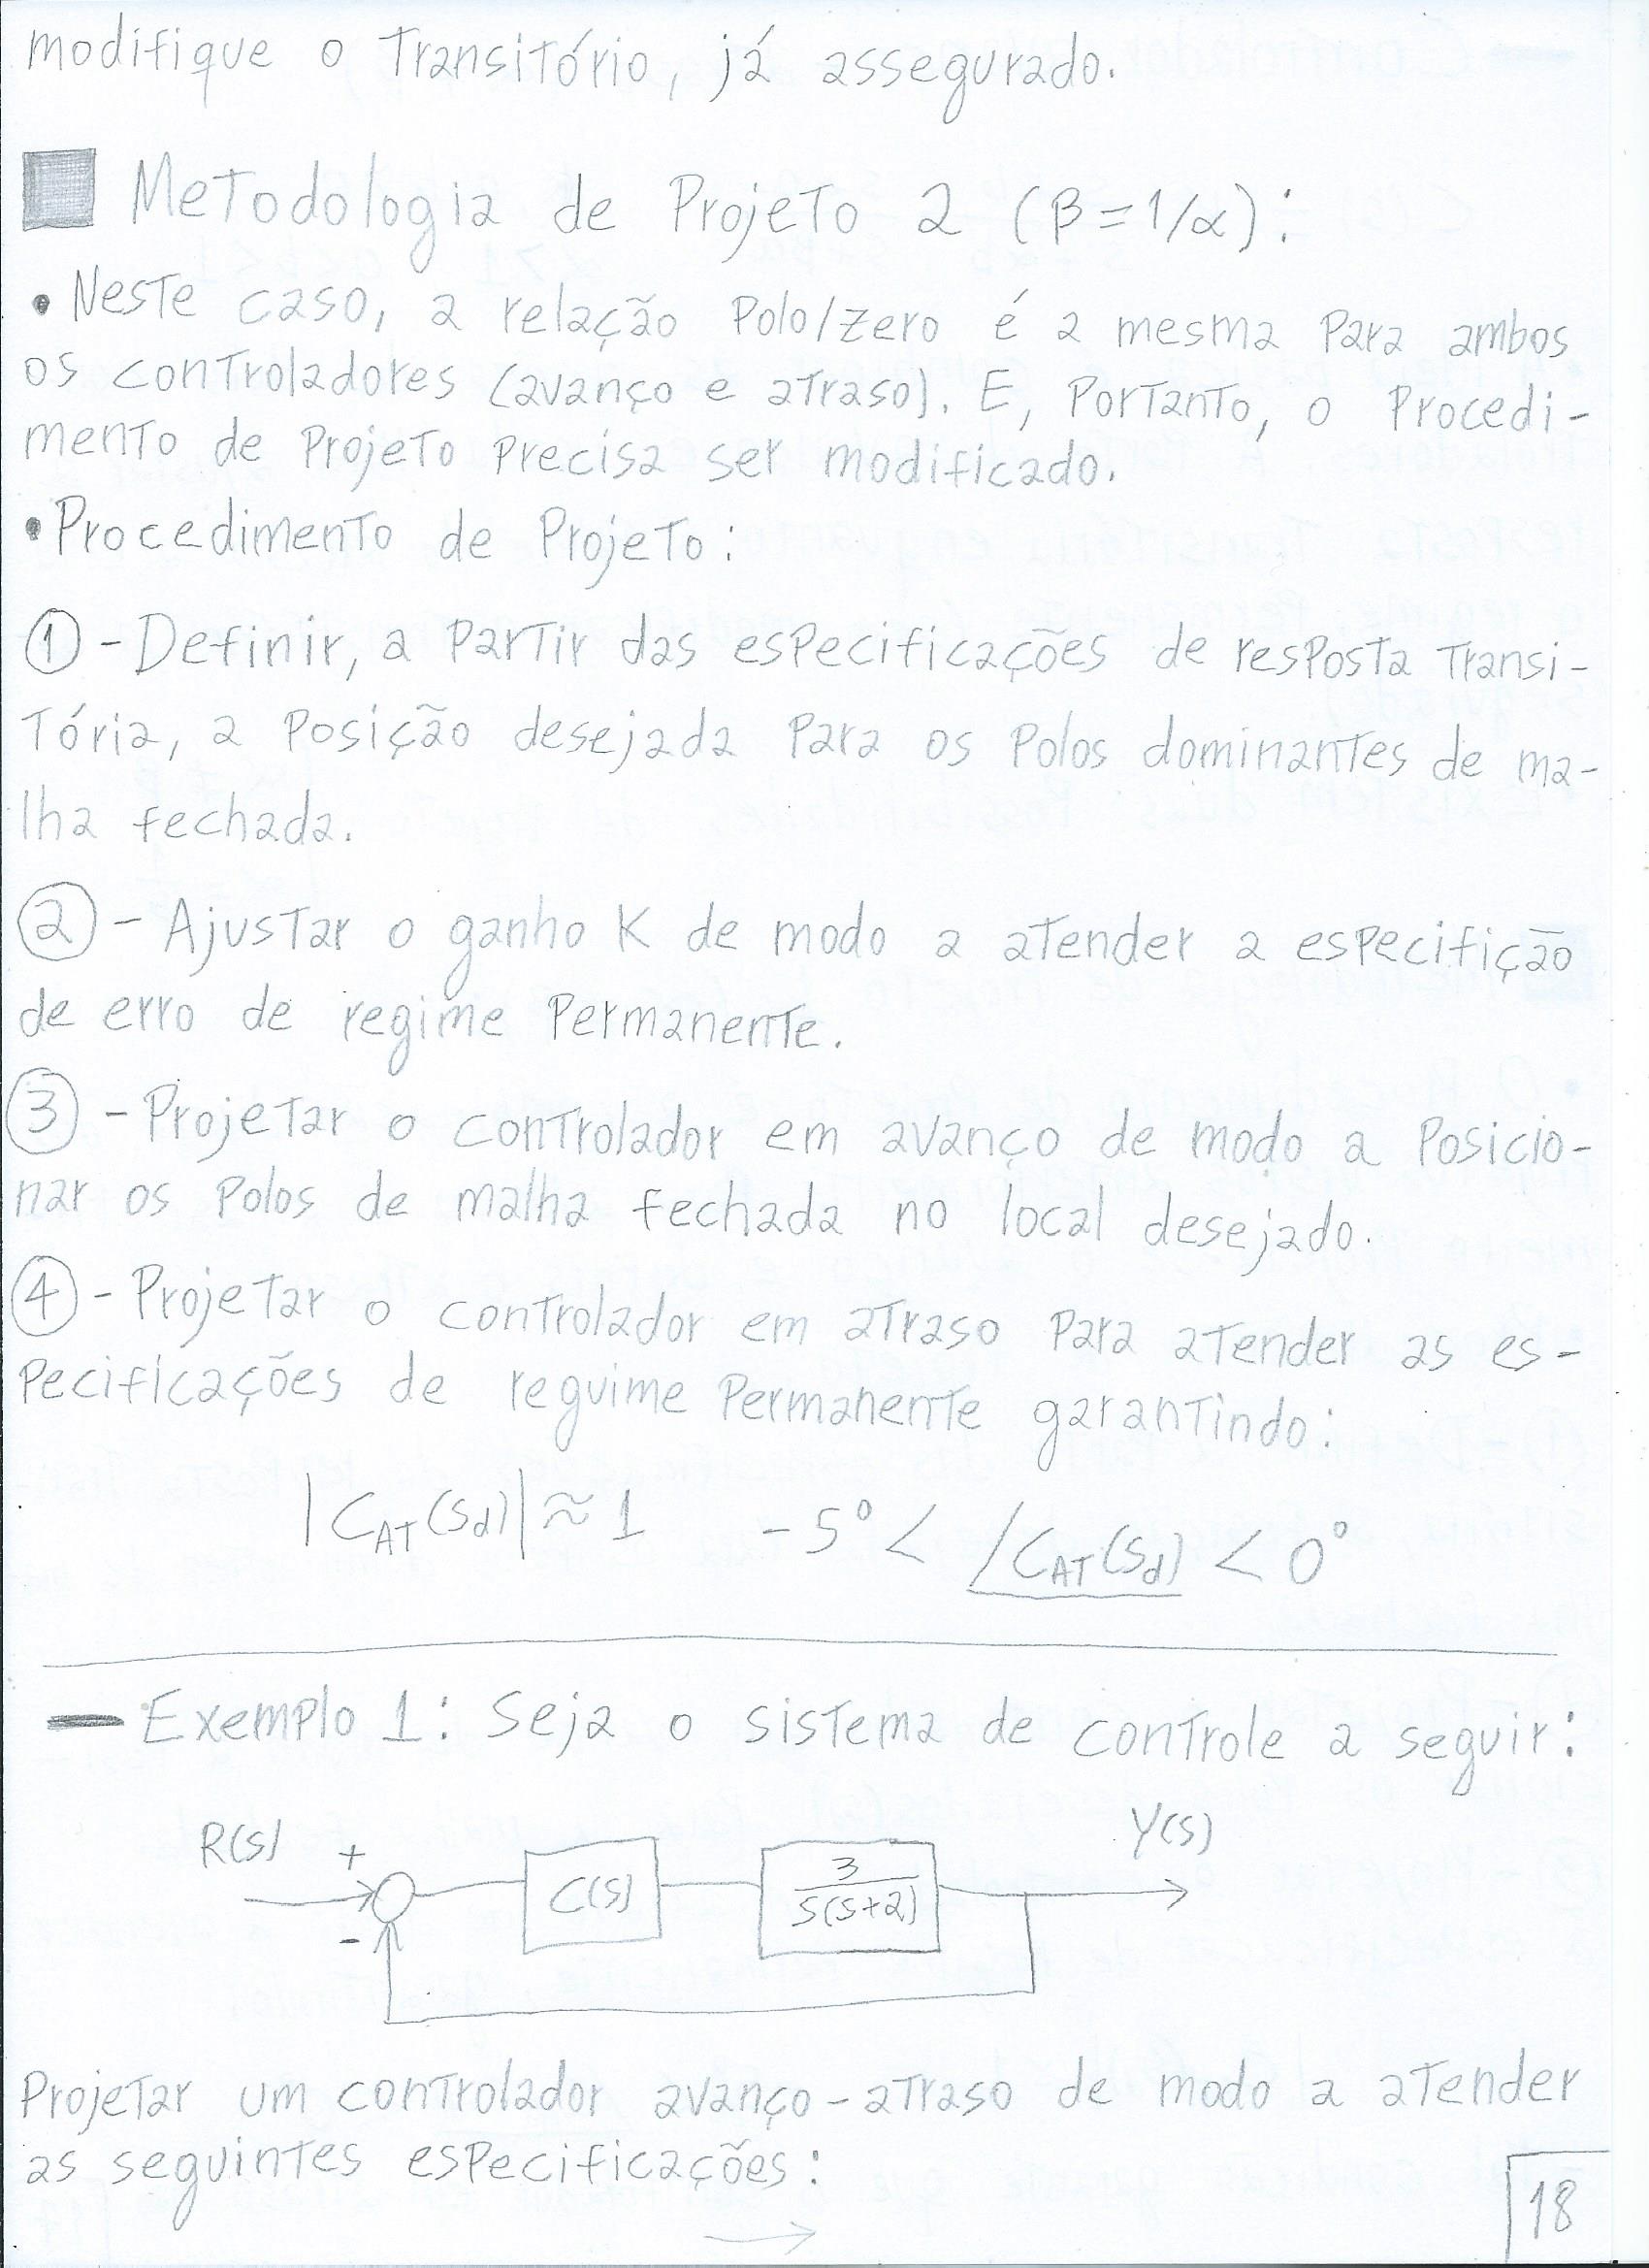 modifique o Transitório, já assegurado.
Metodologia de Projeto 2 (β=1/α):
• Neste caso, a relação Polo/zero é a mesma Para ambos
os controladores (avanço e atraso). E, Portanto, o Procedi-
mento de Projeto Precisa ser modificado.
• Procedimento de Projeto:
① - Definir, a Partir das especificações de resposta Transi-
Tória, a Posição desejada Para os Polos dominantes de ma-
lha fechada.
② - Ajustar o ganho K de modo a atender a especifição
de erro de regime Permanente.
③ - Projetar o controlador em avanço de modo a Posicio-
nar os Polos de malha fechada no local desejado.
④ - Projetar o controlador em atraso Para atender as es-
Pecificações de reguime Permanente garantindo:
|C_AT(s_d)| ≈ 1   -5° < /C_AT(s_d) < 0°
— Exemplo 1: Seja o sistema de controle a seguir:
R(s) + - C(s) 3/s(s+2) Y(s)
Projetar um controlador avanço-atraso de modo a atender
as seguintes especificações:
→
18